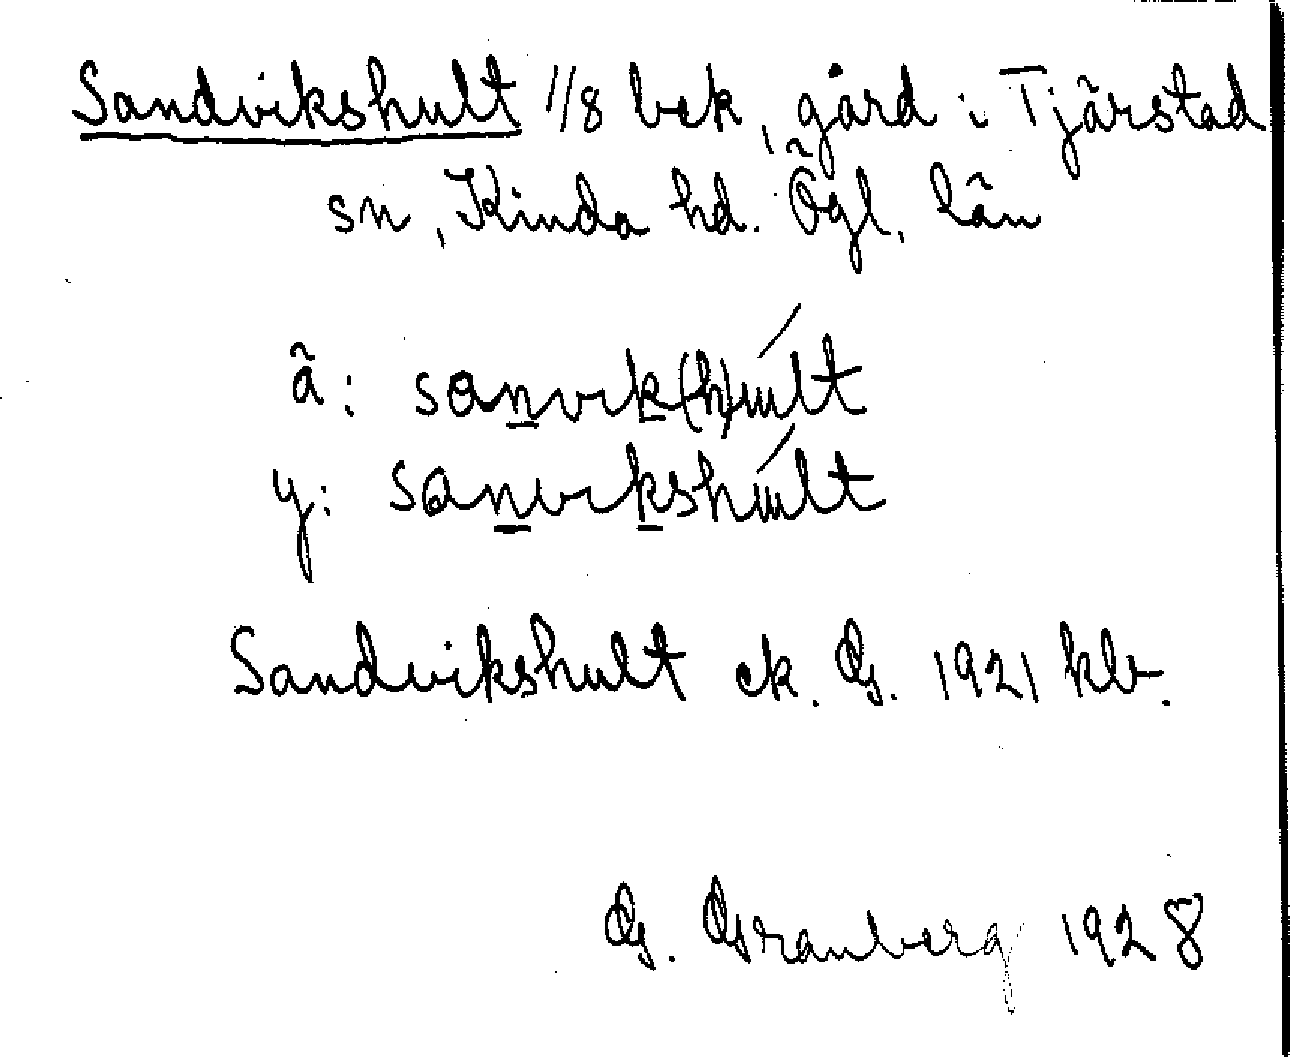 Sandvikshult 1/8 bek, gård i Tjärstad
sn, Kinda hd. Ögl. län
ä: sanvik(h)ult
y: sanvikshult
Sandvikshult ek. G. 1921 klr.
G. Granberg 1928